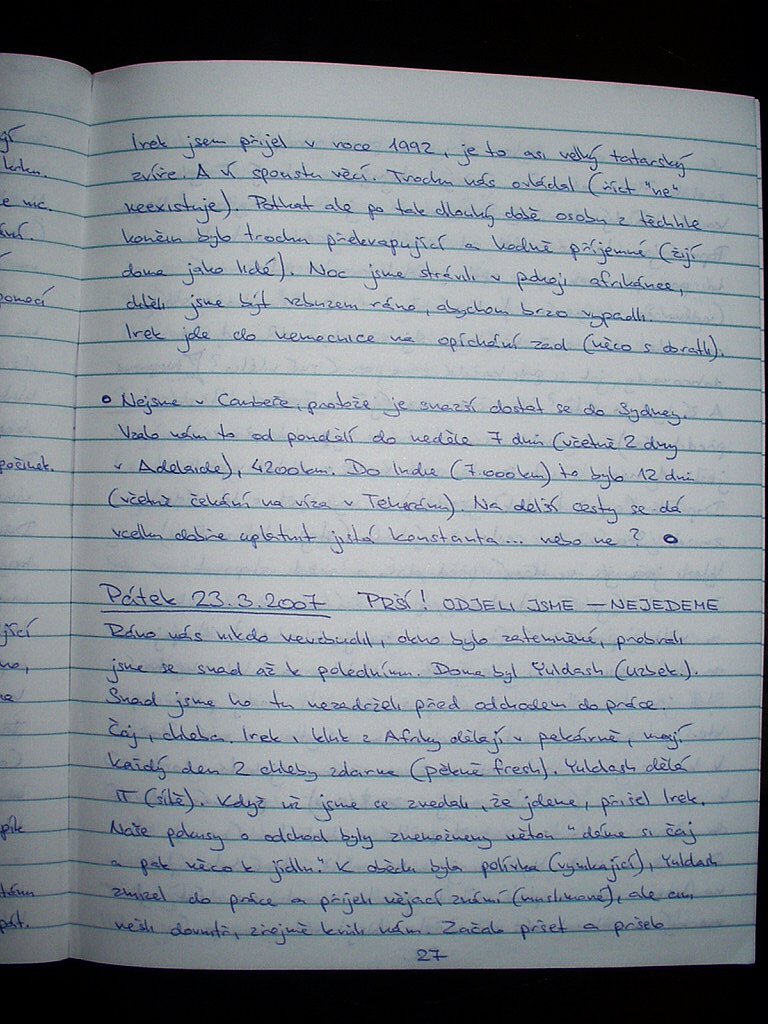 gí
krku.
e nic.
sví.
pomocí
počinek.
jící
no,
na
pík
pát.
Irek jsem přijel v roce 1992, je to asi velký tatarský
zvíře. A ví spoustu věcí. Trochu nás ovládal (říct "ne"
neexistuje). Potkat ale po tak dlouhý době osobu z těchhle
končin bylo trochu překvapující a hodně příjemné (žijí
doma jako lidé). Noc jsme strávili v pokoji afrikánce,
chtěli jsme být vzbuzeni ráno, abychom brzo vypadli.
Irek jde do nemocnice na opíchání zad (něco s obratli).
Nejsme v Canbeře, protože je snazší dostat se do Sydney.
Vzalo nám to od pondělí do neděle 7 dnů (včetně 2 dny
v Adelaide), 4200km. Do Indie (7.000km) to bylo 12 dnů
(včetně čekání na víza v Teheránu). Na delší cesty se dá
vcelku dobře uplatnit jistá konstanta... nebo ne?
Pátek 23.3.2007 PRŠÍ! ODJELI JSME – NEJEDEME
Ráno nás nikdo nevzbudil, okno bylo zatemněné, probrali
jsme se snad až k polednímu. Doma byl Yuldash (Uzbek.).
Snad jsme ho tu nezadrželi před odchodem do práce.
Čaj, chleba. Irek i kluk z Afriky dělají v pekárně, mají
každý den 2 chleby zdarma (pěkně fresh). Yuldash dělá
IT (sítě). Když už jsme se zvedali, že jdeme, přišel Irek.
Naše pokusy o odchod byly znemožněny větou "dáme si čaj
a pak něco k jídlu." K obědu byla polívka (vynikající), Yuldash
zmizel do práce a přijeli nějací známí (muslimové), ale ani
nešli dovnitř, zřejmě kvůli nám. Začalo pršet a pršelo
27